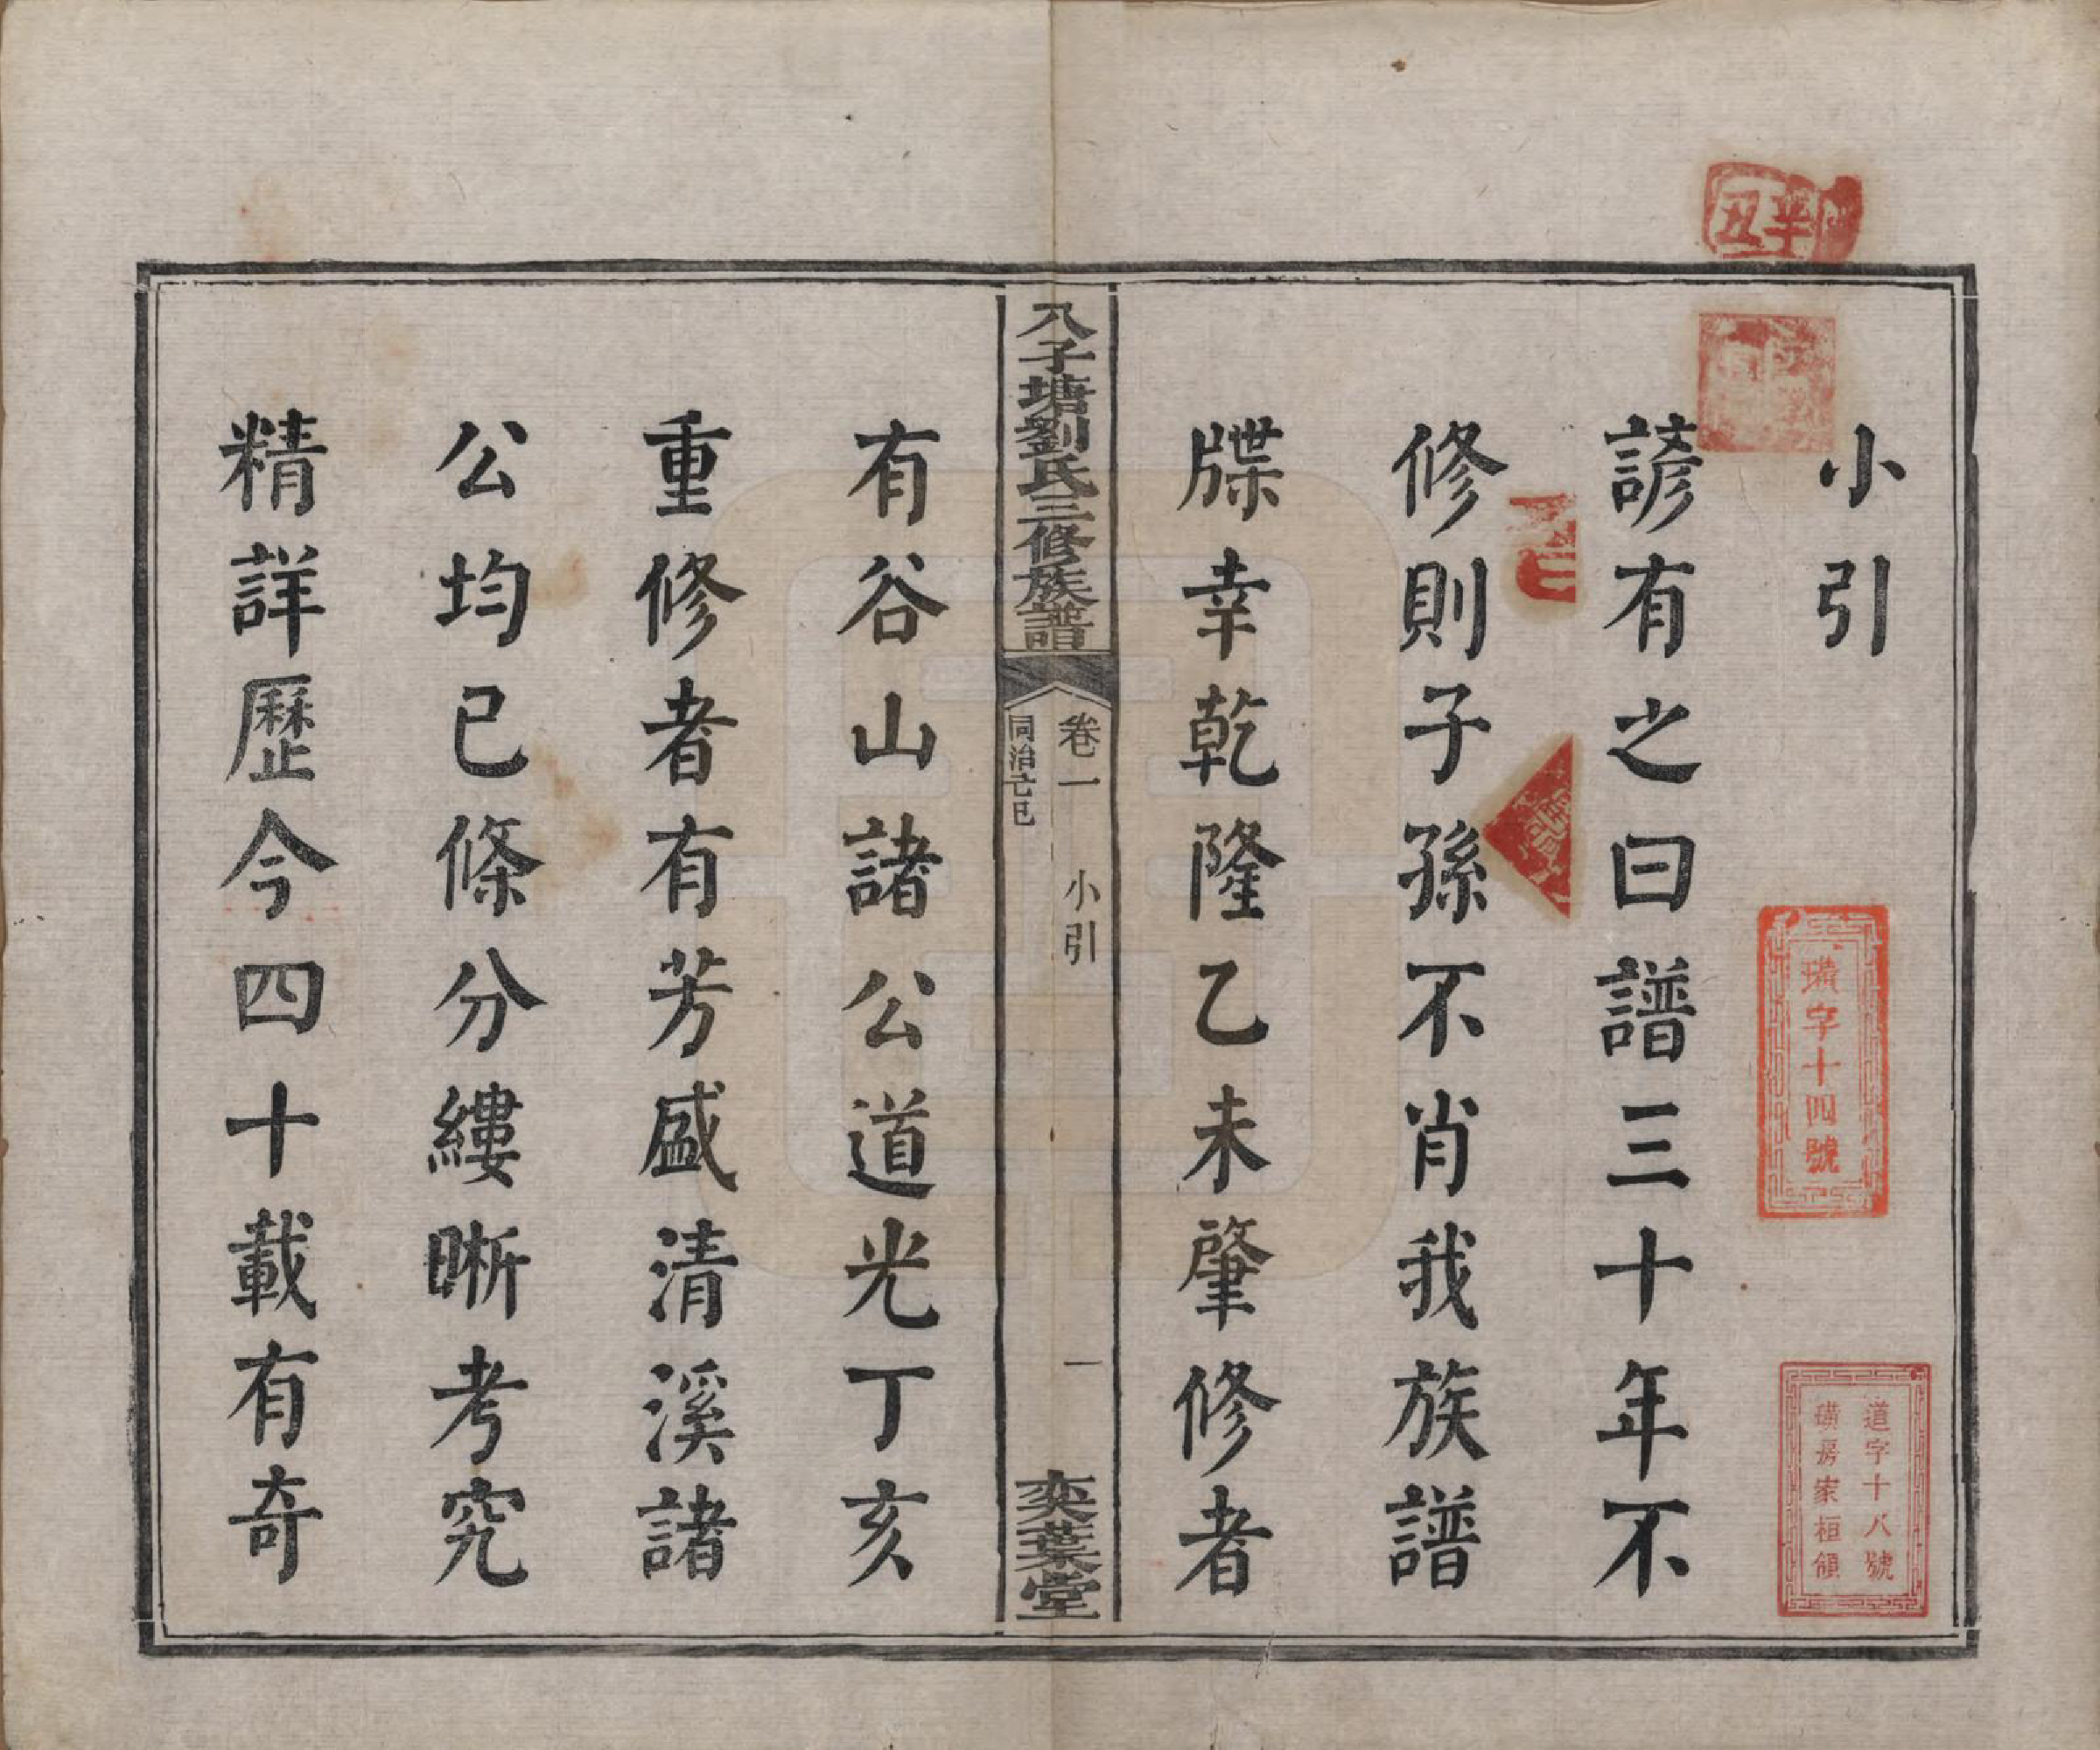 小引
諺有之曰譜三十年不
修則子孫不肖我族譜
牒幸乾隆乙未肇修者
八子塘劉氏三修族譜
卷一 小引 一
同治己巳
奕葉堂
有谷山諸公道光丁亥
重修者有芳盛清溪諸
公均已條分縷晰考究
精詳歷今四十載有奇
璜字十四號
道字十八號
璜房家桓領